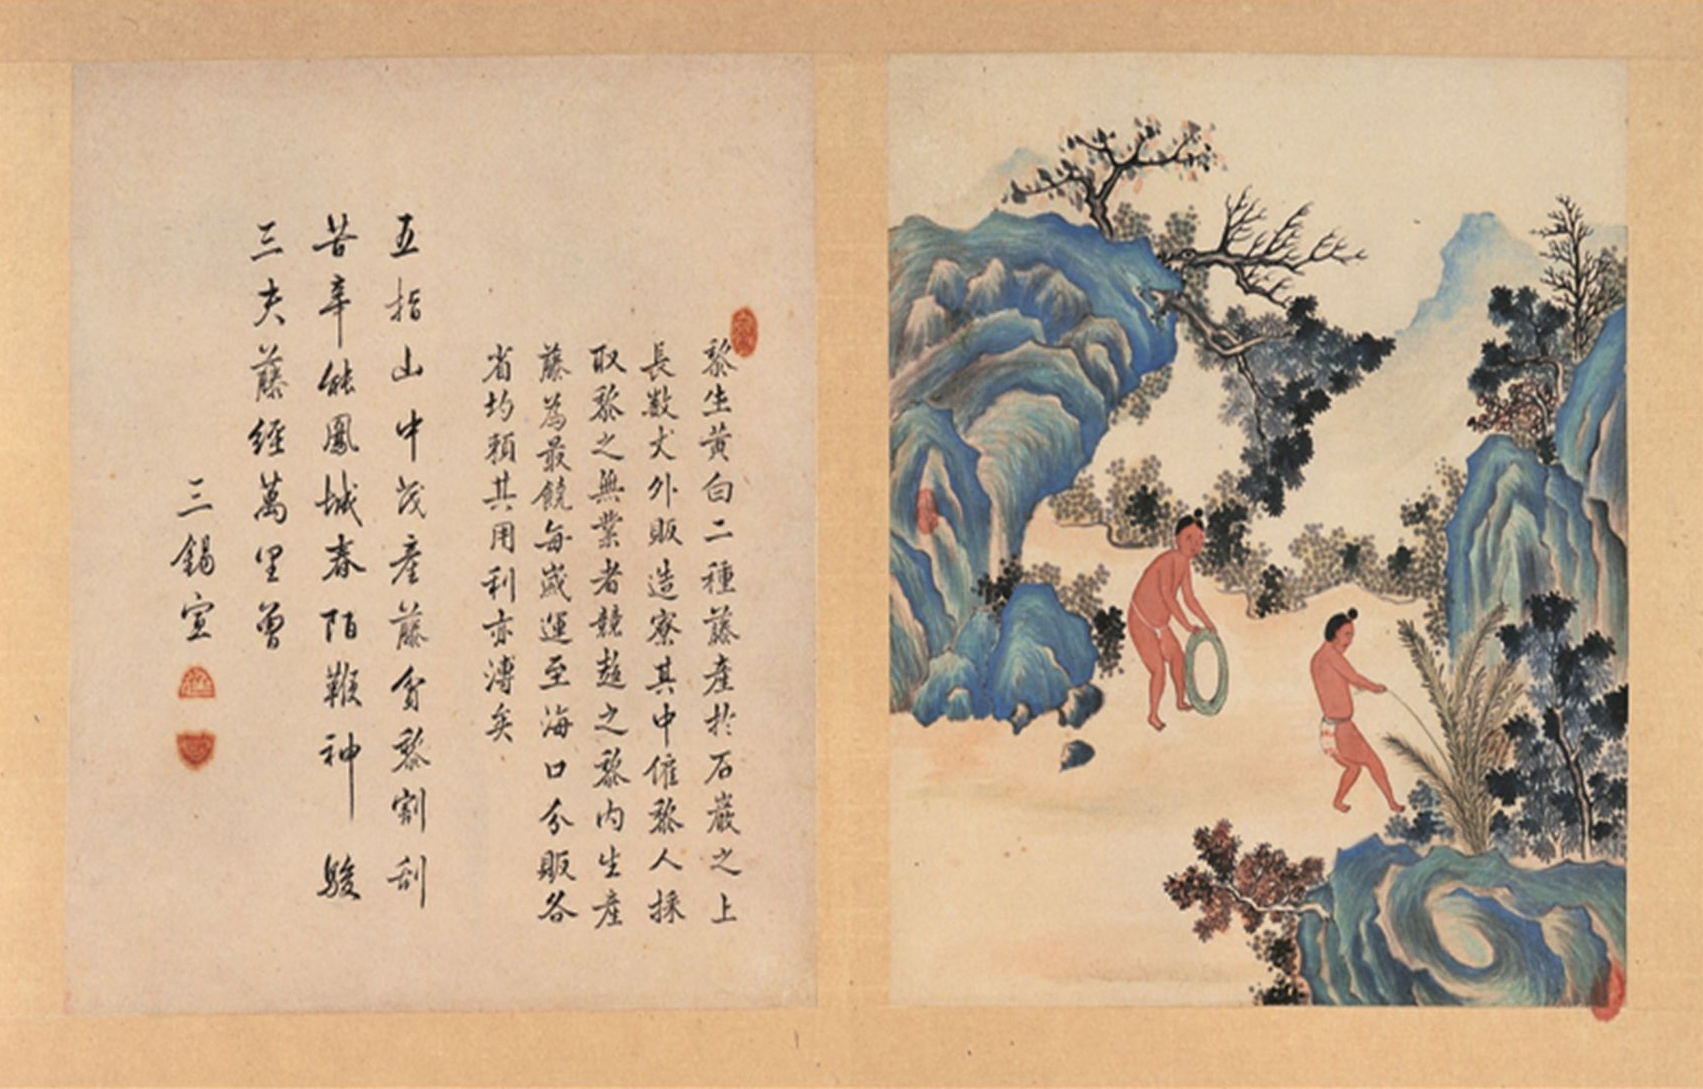 藜生黃白二種藤產於石巖之上
長數丈外販造寮其中僱黎人採
取黎之無業者競趨之黎內生產
藤為最饒每歲運至海口分販各
省均賴其用利亦溥矣
五指山中茂產藤貧黎割刮
苦辛能鳳城春陌鞭神駿
三尺藤經萬里曾
三錫宣